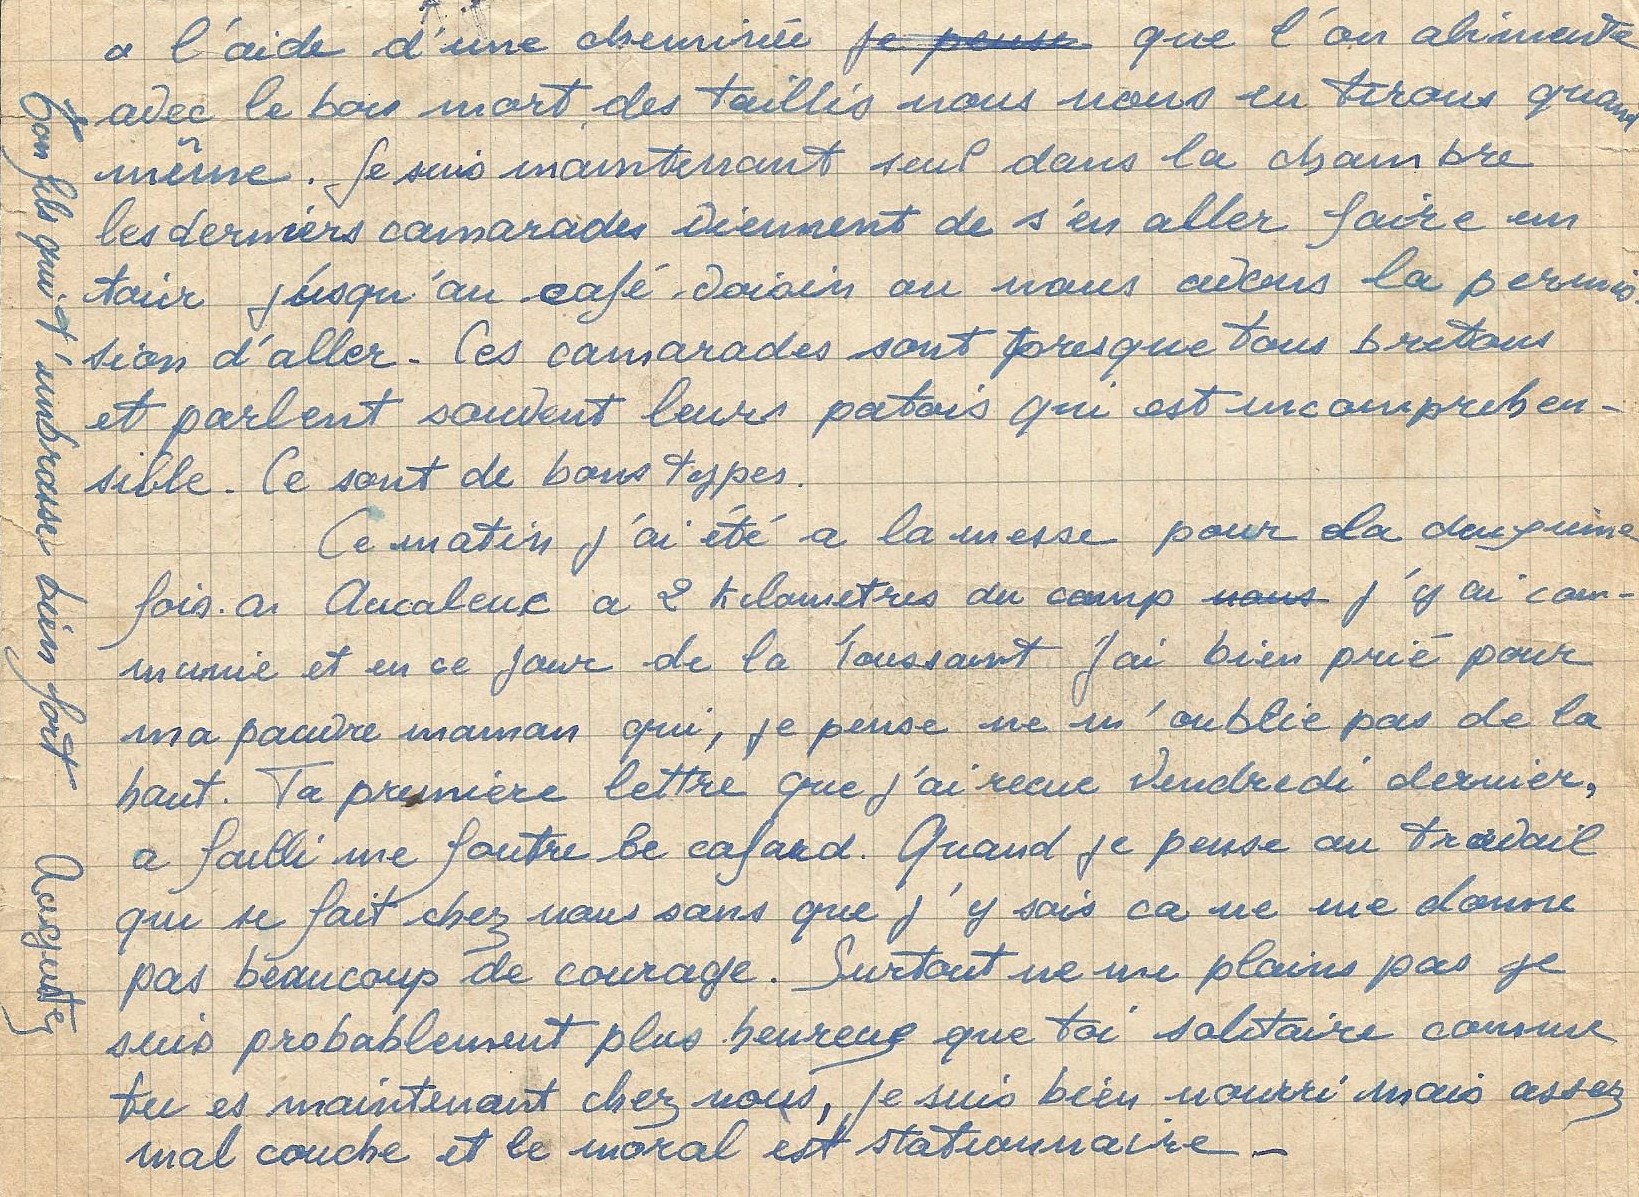 a l'aide d'une cheminée je pense que l'on alimente
avec le bois mort des taillis nous nous en tirons quand
même. Je suis maintenant seul dans la chambre
les derniers camarades viennent de s'en aller faire un
tour jusqu'au café voisin ou nous avons la permis-
sion d'aller. Ces camarades sont presque tous bretons
et parlent souvent leurs patois qui est incompréhen-
sible. Ce sont de bons types.
Ce matin j'ai été a la messe pour la deuxième
fois. a Aucaleuc a 2 kilometres du camp nous j'y ai com-
munie et en ce jour de la Toussaint j'ai bien prié pour
ma pauvre maman qui, je pense ne m'oublie pas de la
haut. Ta première lettre que j'ai recue Vendredi dernier,
a failli me foutre le cafard. Quand je pense au travail
qui se fait chez nous sans que j'y sois ca ne me donne
pas beaucoup de courage. Surtout ne me plains pas je
suis probablement plus heureux que toi solitaire comme
tu es maintenant chez nous, je suis bien nourri mais assez
mal couche et le moral est stationnaire -
Ton fils qui t'embrasse bien fort Auguste